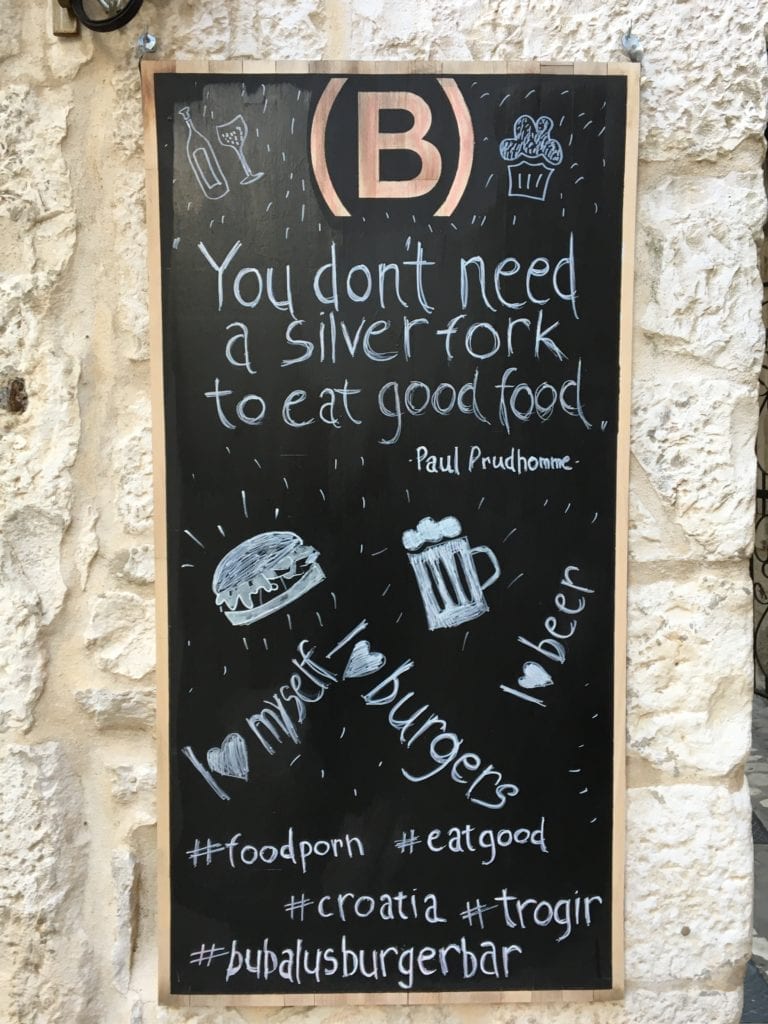 (B)
You don't need
a silver fork
to eat good food.
-Paul Prudhomme-
I ♥ myself
I ♥ burgers
I ♥ beer
#foodporn #eatgood
#croatia #trogir
#bubalusburgerbar